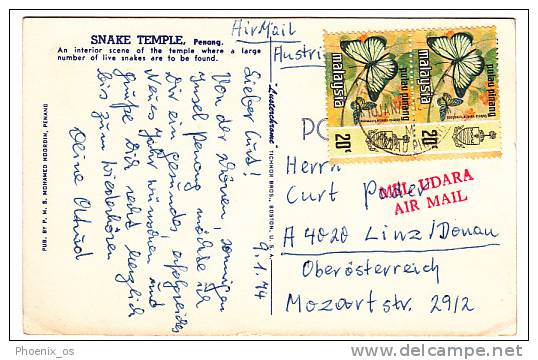 SNAKE TEMPLE, Penang.
An interior scene of the temple where a large
number of live snakes are to be found.
AirMail
Austria
pulau pinang
malaysia
20c
pulau pinang
malaysia
20c
PUB. BY P. M. S. MOHAMED NOORDIN, PENANG
"Lusterchrome" TICHNOR BROS., BOSTON, U. S. A.
9.1.74
Lieber Curt!
Von der schönen, sonnigen
Insel Penang möchte ich
Dir ein gesundes, erfolgreiches
Neues Jahr wünschen und
grüße Dich recht herzlich
bis zum Wiederhören
Deine
PO
Herrn
Curt
MEL UDARA
AIR MAIL
A 4020 Linz/Donau
Oberösterreich
Mozartstr. 29/2
Phoenix_os
delcampe.net